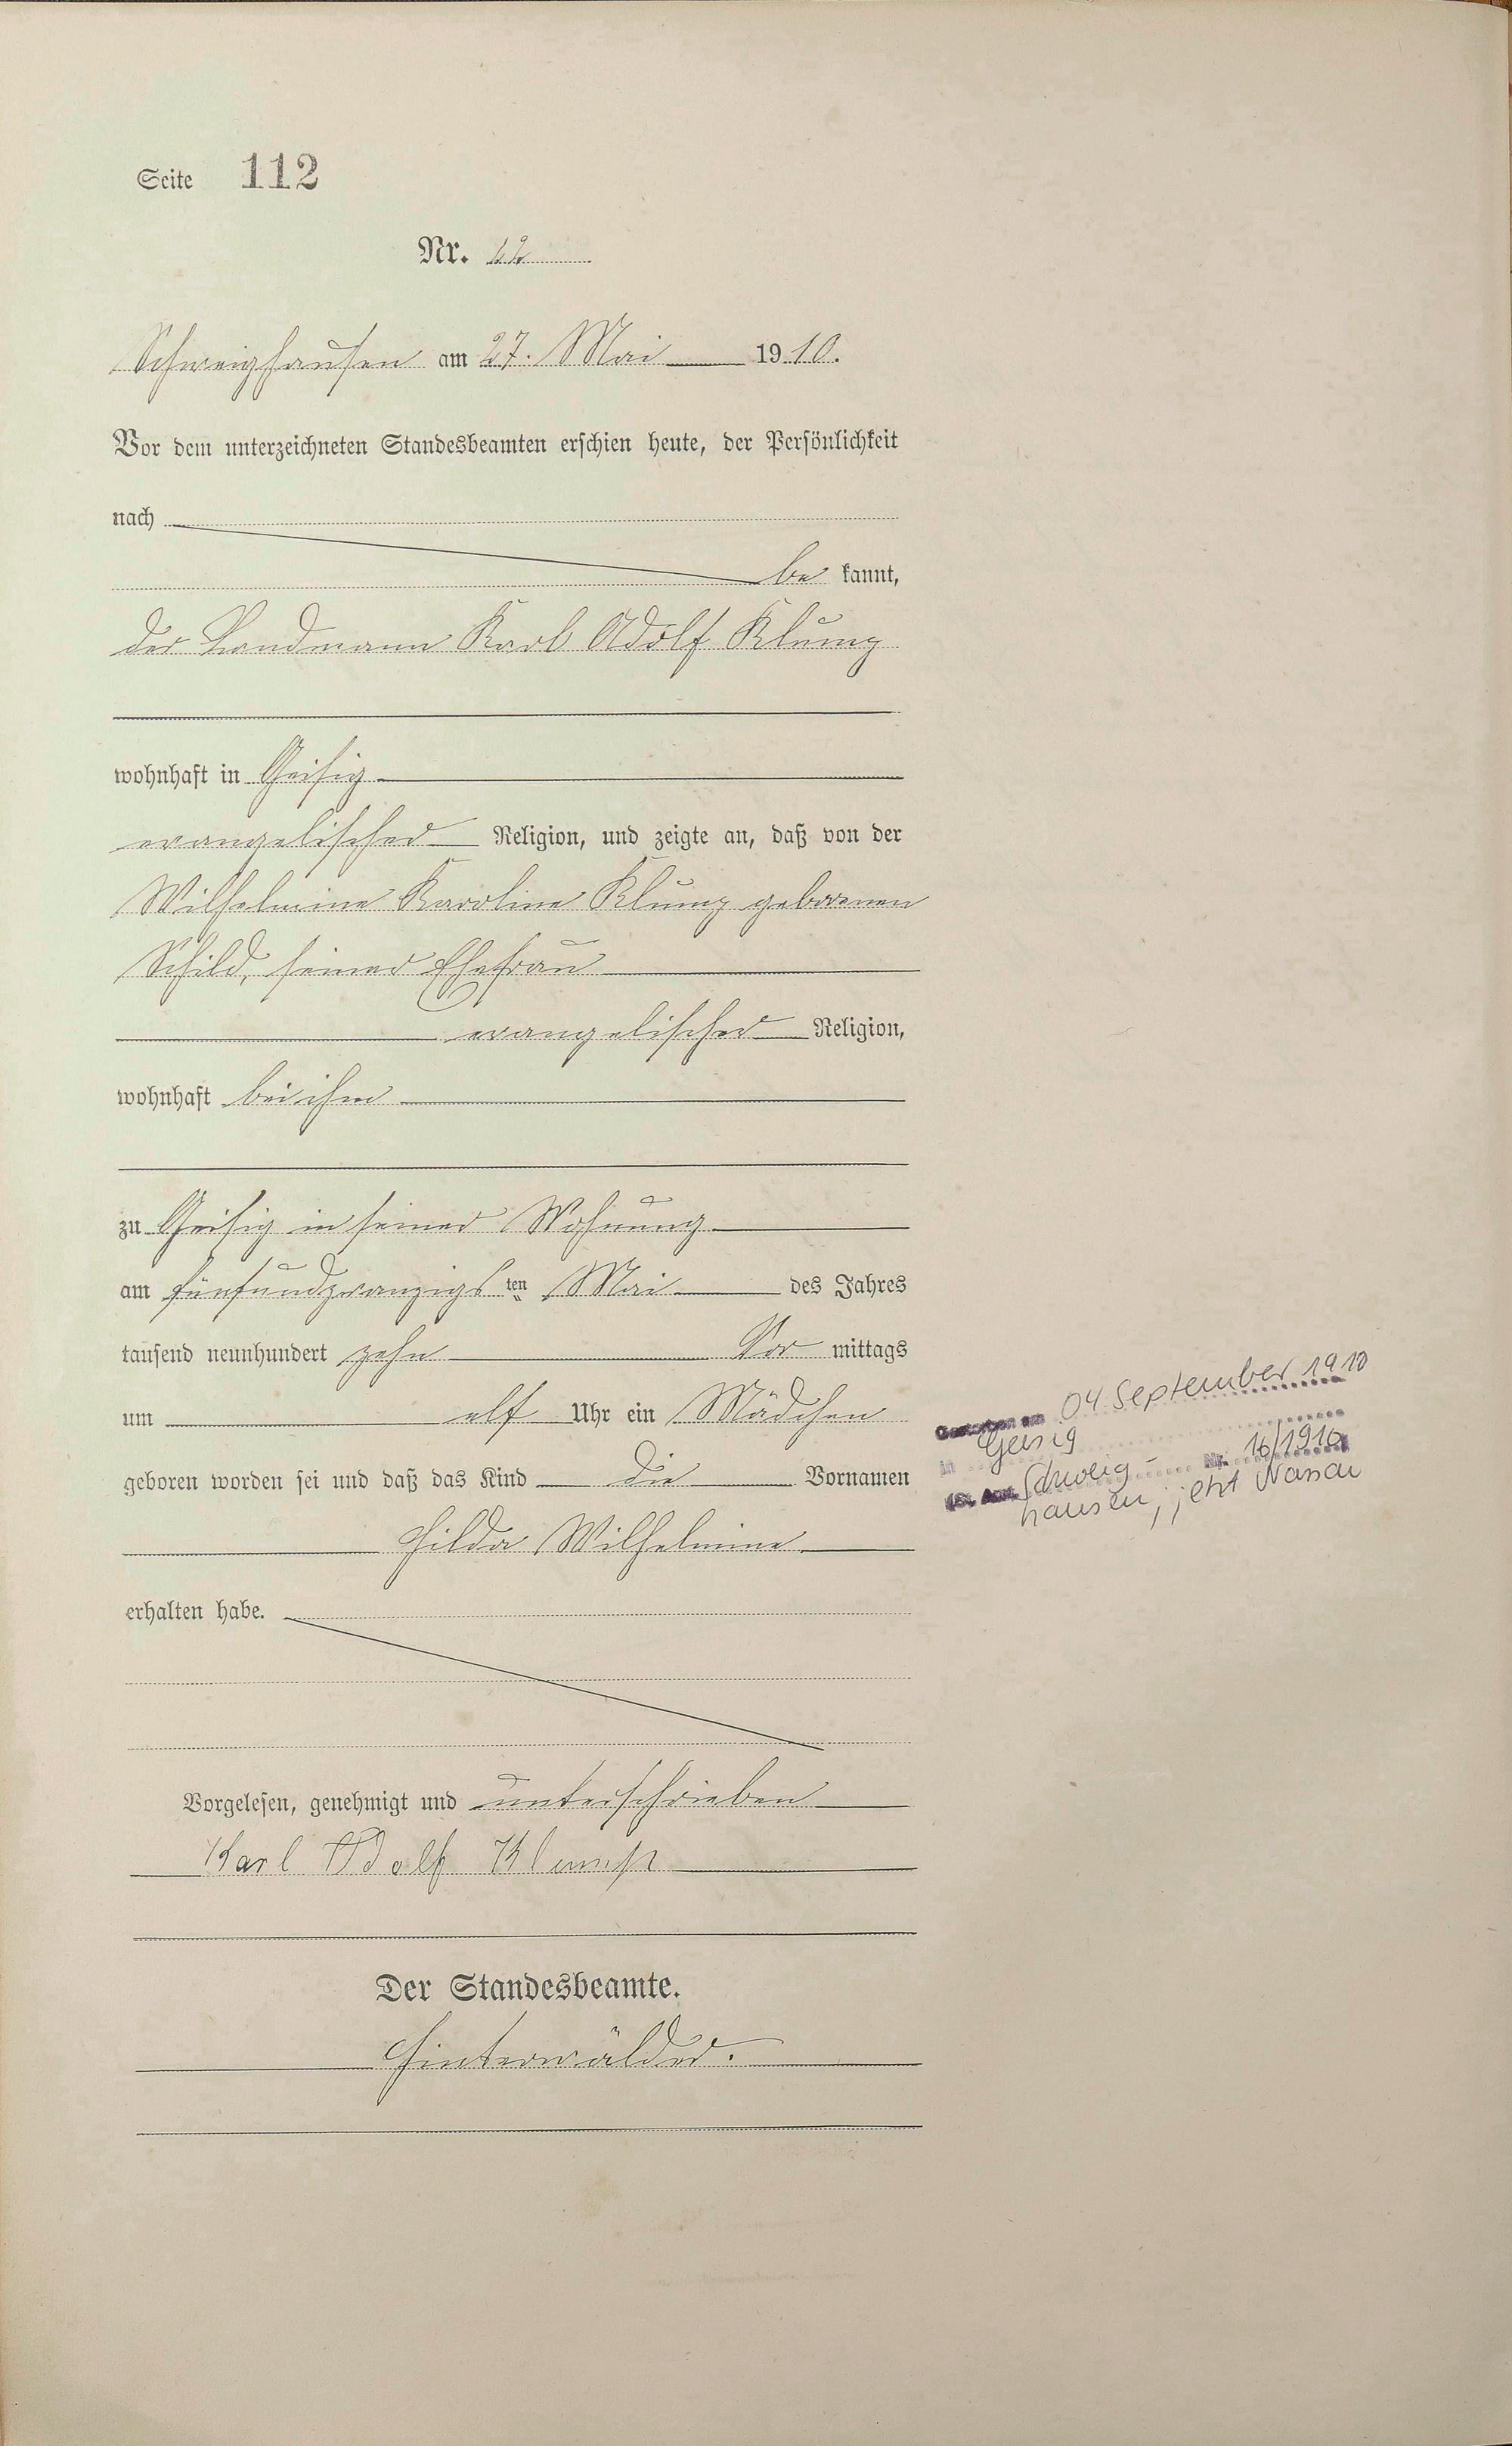 Seite 112
Nr. 12
Schweighausen am 27. Mai 1910.
Vor dem unterzeichneten Standesbeamten erschien heute, der Persönlichkeit
nach
be kannt,
der Landmann Karl Adolf Klump
wohnhaft in Geisig
evangelischer Religion, und zeigte an, daß von der
Wilhelmine Karoline Klump geborenen
Schild, seiner Ehefrau
evangelischer Religion,
wohnhaft bei ihm
zu Geisig in seiner Wohnung
am fünfundzwanzigs ten Mai des Jahres
tausend neunhundert zehn Vor mittags
um elf Uhr ein Mädchen
geboren worden sei und daß das Kind die Vornamen
Hilda Wilhelmine
erhalten habe.
Vorgelesen, genehmigt und unterschrieben
Karl Adolf Klump
Der Standesbeamte.
Hinterwälder.
Gestorben am 04. September 1910
in Geisig
(St. Amt Schweig- Nr. 16/1910
hausen, jetzt Nassau